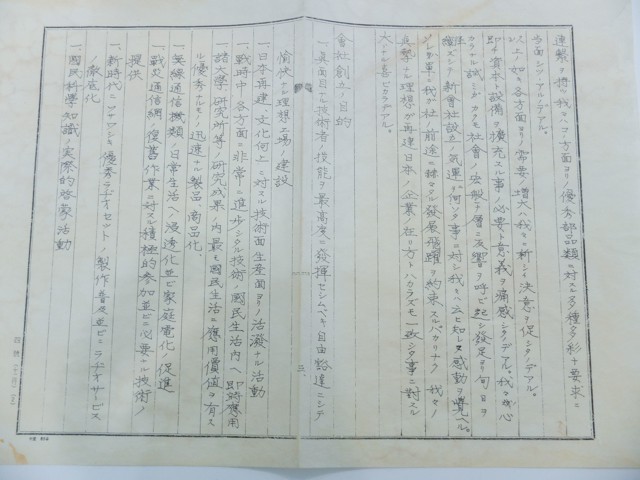 連繋ヲ持ツ我々ハコノ方面ヨリノ優秀部品類ニ対スル多種多彩ナ要求ニ
当面シツヽアルノデアル。
以上ノ如キ各方面ヨリノ需要ノ増大ハ我々ニ新シイ決意ヲ促シタノデアル。
即チ資本ト設備ヲ擴充スル事ノ必要ト意義ヲ痛感シタノデアル。我々ノ心
カラナル試ミガカクモ社會ノ宏範ナ層ニ反響ヲ呼ビ起シ発足ヨリ旬日ヲ
経ズシテ新會社設立ノ気運ニ向ツタ事ニ対シ我々ハ云ヒ知レヌ感動ヲ覺ヘル。
ソレハ単ニ我ガ社ノ前途ニ輝カシイ發展飛躍ヲ約束スルバカリデナク我々ノ
真摯ナル理想ガ再建日本ノ企業ノ在リ方トハカラズモ一致シタ事ニ対スル
大イナル喜ビカラデアル。
會社創立ノ目的
一、真面目ナル技術者ノ技能ヲ最高度ニ發揮セシムベキ自由豁達ニシテ
愉快ナル理想工場ノ建設
一、日本再建、文化向上ニ対スル技術面、生産面ヨリノ活溌ナル活動
一、戦時中、各方面ニ非常ニ進歩シタル技術ノ國民生活内ヘノ即時應用
一、諸大學、研究所等ノ研究成果ノ内、最モ國民生活ニ應用価値ヲ有ス
ル優秀ナルモノノ迅速ナル製品、商品化
一、無線通信機類ノ日常生活ヘノ浸透化並ビニ家庭電化ノ促進
一、戦災通信網ノ復舊作業ニ対スル積極的参加並ビニ必要ナル技術ノ
提供
一、新時代ニフサワシキ優秀ラヂオセットノ製作普及並ビニラヂオサービス
ノ徹底化
一、國民科学知識ノ実際的啓蒙活動
三、